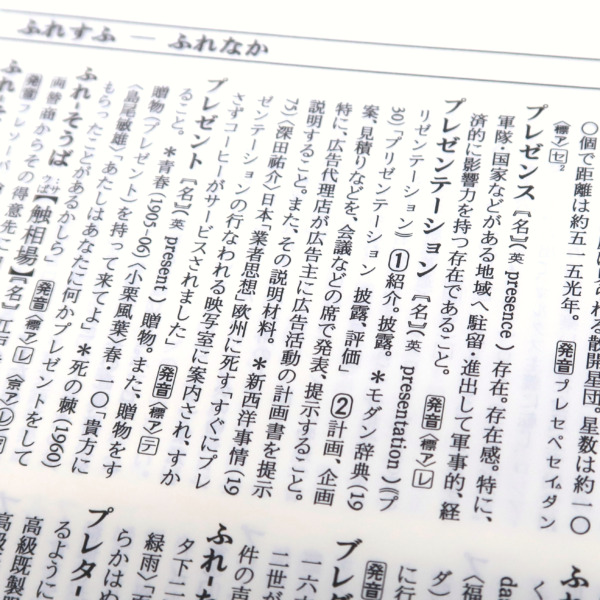 ふれすふ — ふれなか
〇個で距離は約五一五光年。 発音 プレセペセイダン
〈標ア〉セ2
プレゼンス 〖名〗(英 presence) 存在。存在感。特に、
軍隊・国家などがある地域へ駐留・進出して軍事的、経
済的に影響力を持つ存在であること。 発音 〈標ア〉レ
プレゼンテーション 〖名〗(英 presentation)(「プ
リゼンテーション」) ①紹介。披露。＊モダン辞典(19
30)「プリゼンテーション 披露、評価」 ②計画、企画
案、見積りなどを、会議などの席で発表、提示すること。
特に、広告代理店が広告主に広告活動の計画書を提示
説明すること。また、その説明材料。＊新西洋事情(19
75)〈深田祐介〉日本「業者思想」欧州に死す「すぐにプレ
ゼンテーションの行なわれる映写室に案内され、すか
さずコーヒーがサービスされました」
プレゼント 〖名〗(英 present) 贈物。また、贈物をす
ること。＊青春(1905-06)〈小栗風葉〉春・一〇「貴方に
贈物(プレゼント)を持って来てよ」＊死の棘(1960)
〈島尾敏雄〉「あたしはあなたに何かプレゼントをして
もらったことがあるかしら」 発音 〈標ア〉レ
ふれ-そうば【触相場】〖名〗江戸
両替商からその得意先に
発音 フレソーバ
ふれ
ブレ
発音
に行
プレター
るように
高級既製